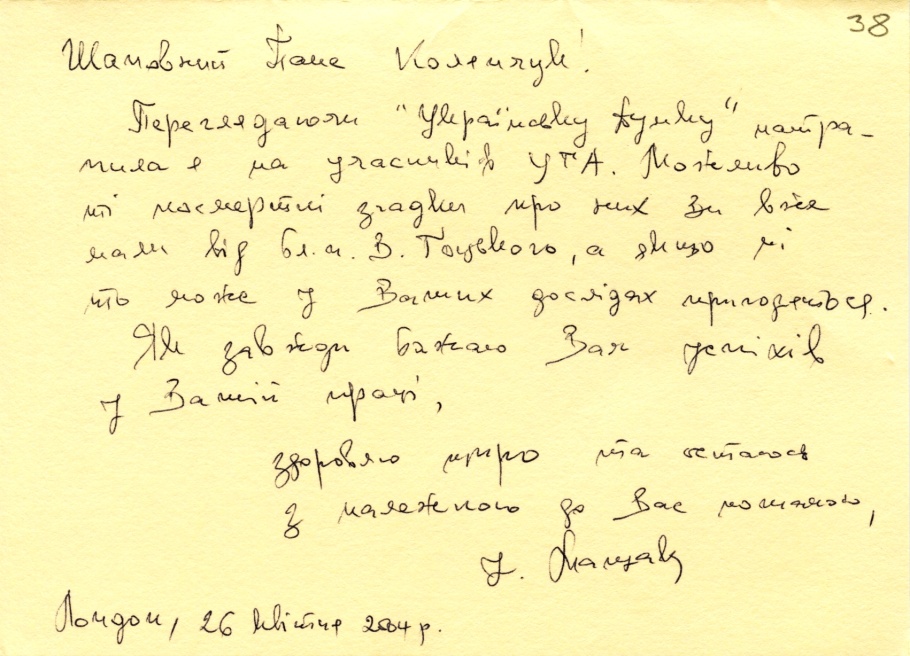 38
Шановний Пане Коленчук!
Переглядаючи "Українську Думку" натра-
пила я на учасників УГА. Можливо
ті посмертні згадки про них Ви вже
мали від бл.п. В. Гоцького, а якщо ні
то може у Ваших дослідах пригодяться.
Як завжди бажаю Вам успіхів
у Вашій праці,
здоровлю щиро та остаюсь
з належною до Вас пошаною,
Лондон, 26 квітня 2004 р.